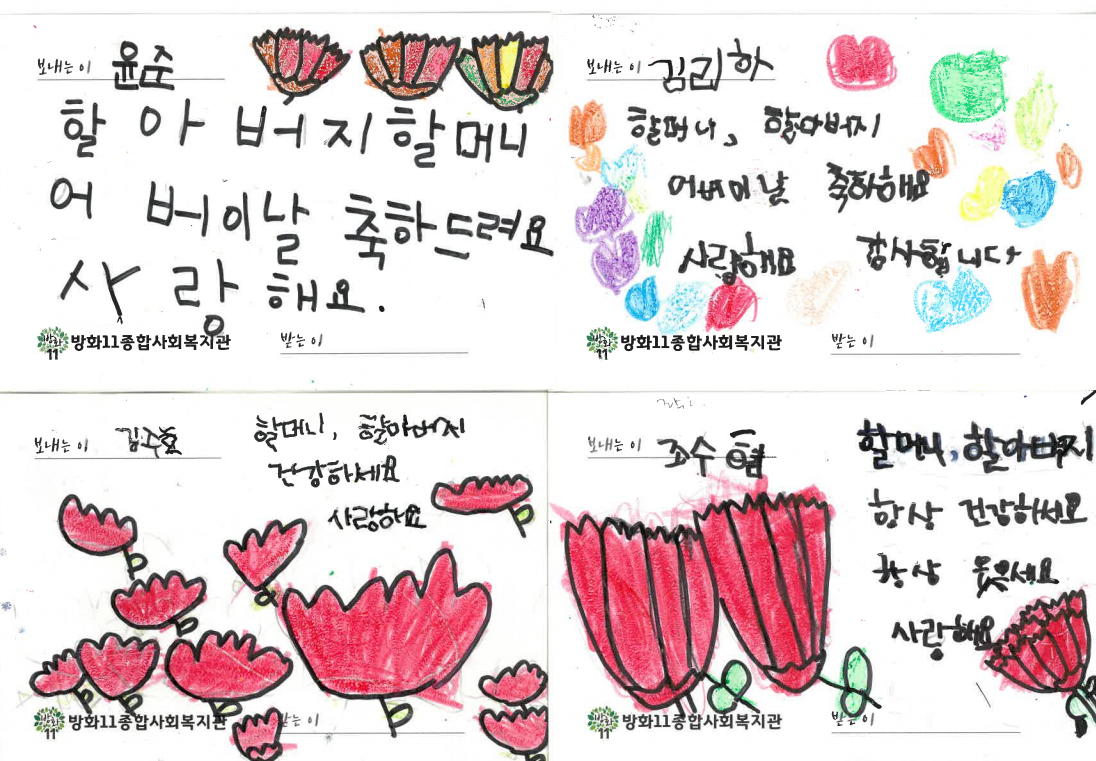 보내는 이 윤준
할아버지할머니
어버이날 축하드려요
사랑해요.
방화11종합사회복지관
받는 이
보내는 이 김리하
할머니, 할아버지
어버이날 축하해요
사랑해요 감사합니다
방화11종합사회복지관
받는 이
보내는 이 김주호
할머니, 할아버지
건강하세요
사랑해요
방화11종합사회복지관
받는 이
보내는 이 조수
할머니, 할아버지
항상 건강하세요
항상 웃으세요
사랑해요
방화11종합사회복지관
받는 이